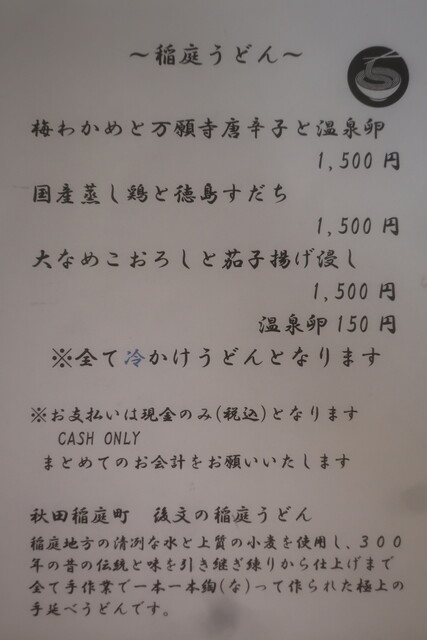 ～稲庭うどん～
梅わかめと万願寺唐辛子と温泉卵
1,500 円
国産蒸し鶏と徳島すだち
1,500 円
大なめこおろしと茄子揚げ浸し
1,500 円
温泉卵 150 円
※全て冷かけうどんとなります
※お支払いは現金のみ(税込)となります
CASH ONLY
まとめてのお会計をお願いいたします
秋田稲庭町　後文の稲庭うどん
稲庭地方の清冽な水と上質の小麦を使用し、３００
年の昔の伝統と味を引き継ぎ練りから仕上げまで
全て手作業で一本一本綯(な)って作られた極上の
手延べうどんです。